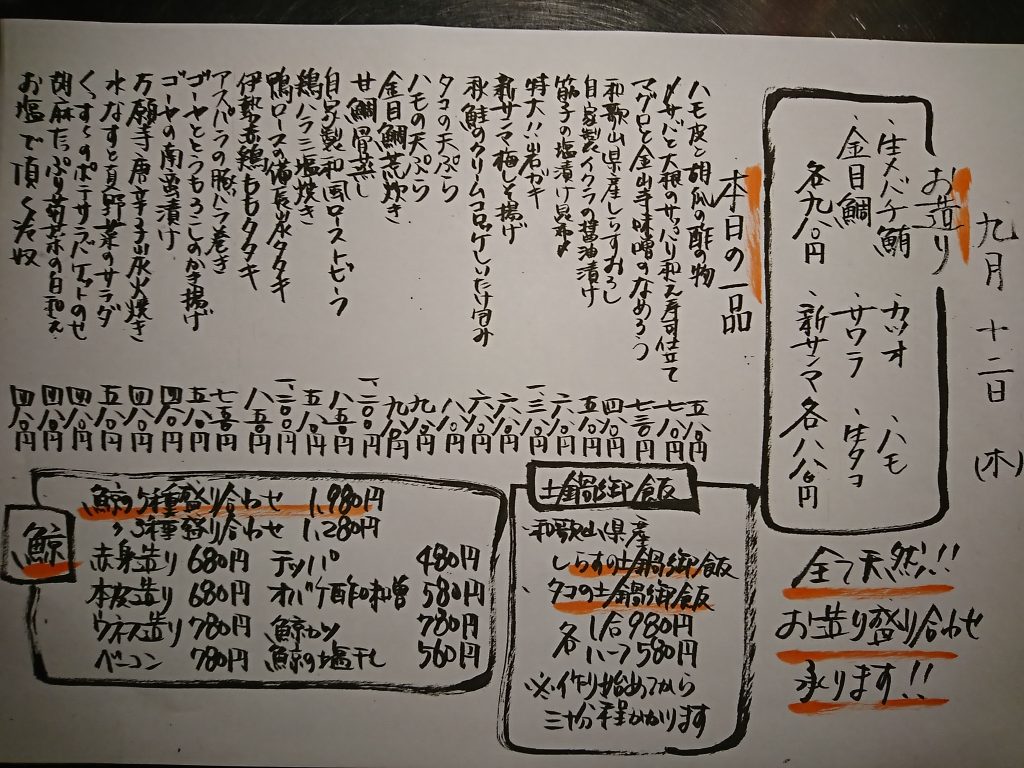 九月十二日(木)
お造り
・生メバチ鮪 ・カツオ ・ハモ
・金目鯛 ・サワラ ・生タコ
各九八〇円 ・新サンマ 各八八〇円
全て天然!!
お造り盛り合わせ
承ります!!
本日の一品
ハモ皮と胡瓜の酢の物 五八〇円
〆サバと大根のサッパリ和え寿司仕立て 七八〇円
マグロと金山寺味噌のなめろう 七三〇円
和歌山県産しらすおろし 四八〇円
自家製イクラの醤油漬け 五八〇円
筋子の塩漬け昆布〆 六八〇円
特大!!岩ガキ 一、三〇〇円
新サンマ梅しそ揚げ 六八〇円
秋鮭のクリームコロッケしいたけ包み 六八〇円
タコの天ぷら 八八〇円
ハモの天ぷら 九八〇円
金目鯛荒炊き 九八〇円
甘鯛骨蒸し 一、二〇〇円
自家製和風ローストビーフ 八五〇円
鶏ハラミ塩焼き 五八〇円
鴨ロース備長炭タタキ 一、二〇〇円
伊勢赤鶏ももタタキ 八五〇円
アスパラの豚バラ巻き 七五〇円
ゴーヤととうもろこしのかき揚げ 五八〇円
ゴーヤの南蛮漬け 四八〇円
万願寺唐辛子炭火焼き 四八〇円
水なすと夏野菜のサラダ 五八〇円
ポテサラバケットのせ 四八〇円
胡麻たっぷり菊菜の白和え 四八〇円
お塩で頂く冷奴 四八〇円
土鍋御飯
・和歌山県産
しらすの土鍋御飯
・タコの土鍋御飯
各 1合980円
ハーフ580円
※作り始めてから
三十分程かかります
鯨
鯨5種盛り合わせ 1,980円
〃3種盛り合わせ 1,280円
赤身造り 680円 テッパ 480円
本皮造り 680円 オバケ酢味噌 580円
ウネス造り 780円 鯨カツ 780円
ベーコン 780円 鯨の塩干し 560円